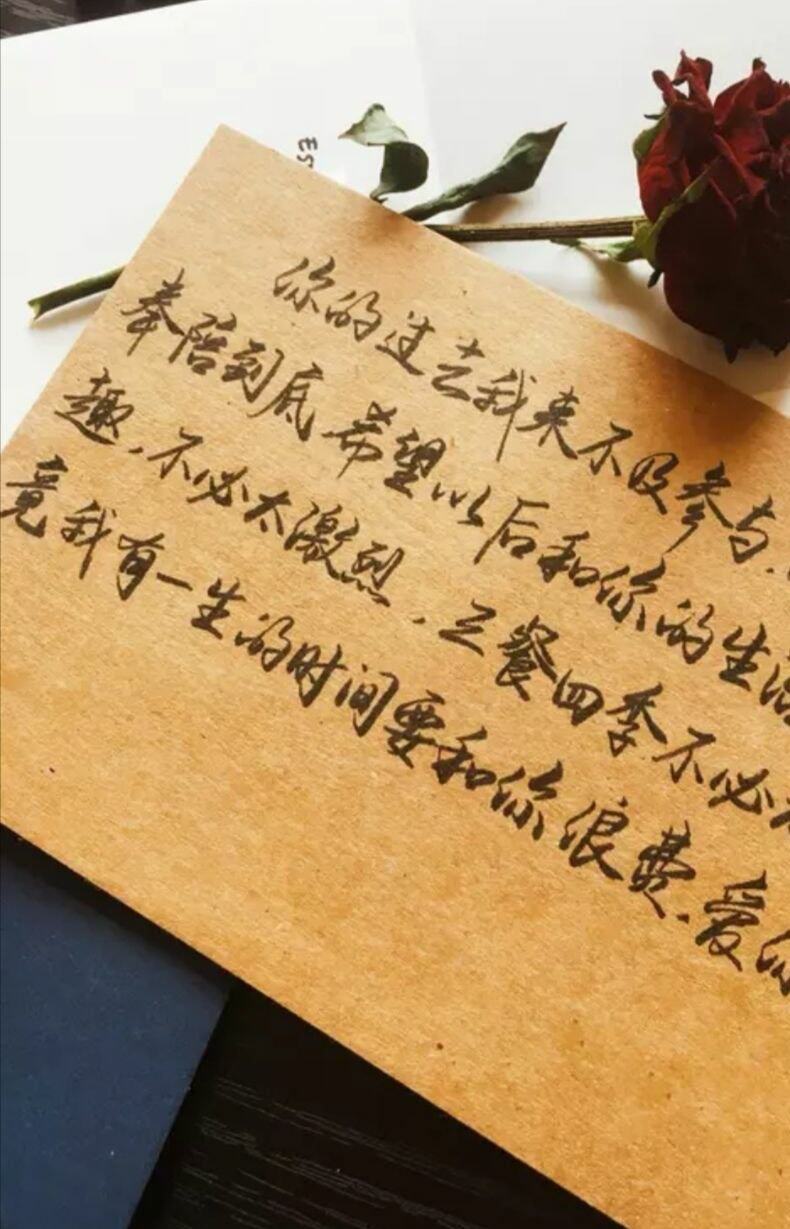 ES
你的过去我来不及参与，
奉陪到底 希望以后和你的生活
趣，不必太激烈，三餐四季不必
竟我有一生的时间要和你浪费，爱你